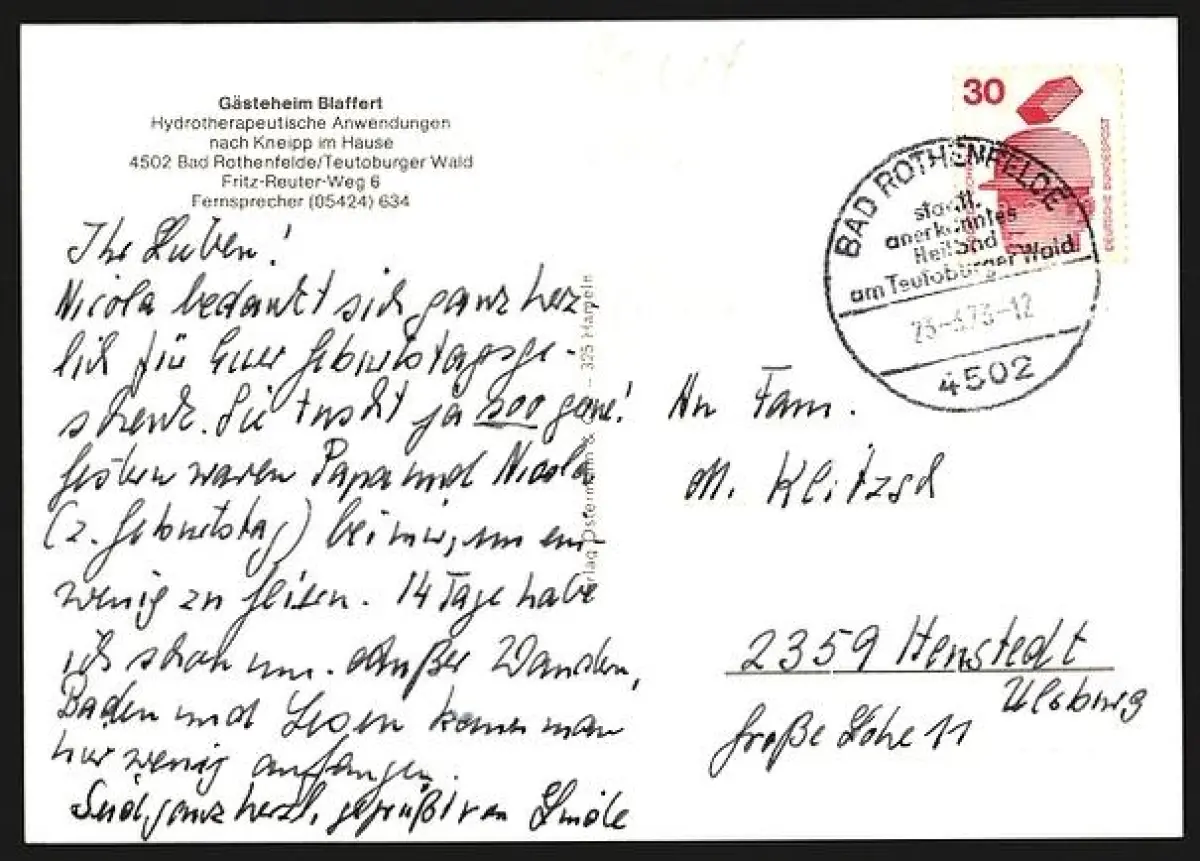 Gästeheim Blaffert
Hydrotherapeutische Anwendungen
nach Kneipp im Hause
4502 Bad Rothenfelde/Teutoburger Wald
Fritz-Reuter-Weg 6
Fernsprecher (05424) 634
Ihr Lieben!
Nicola bedankt sich ganz herz
lich für Euer Geburtstagsge-
schenk. Sie tuscht ja soo gerne!
Gestern waren Papa und Nicola
(2. Geburtstag) bei mir, um ein
wenig zu feiern. 14 Tage habe
ich schon um. Außer Wandern,
Baden und Lesen kann man
hier wenig anfangen.
Seid ganz herzl. gegrüßt von
325 Hameln
30
DEUTSCHE BUNDESPOST
BAD ROTHENFELDE
staatl.
anerkanntes
Heilbad
am Teutoburger Wald
4502
An Fam.
M. Klitzsch
2359 Henstedt
Ulzburg
Große Lohe 11